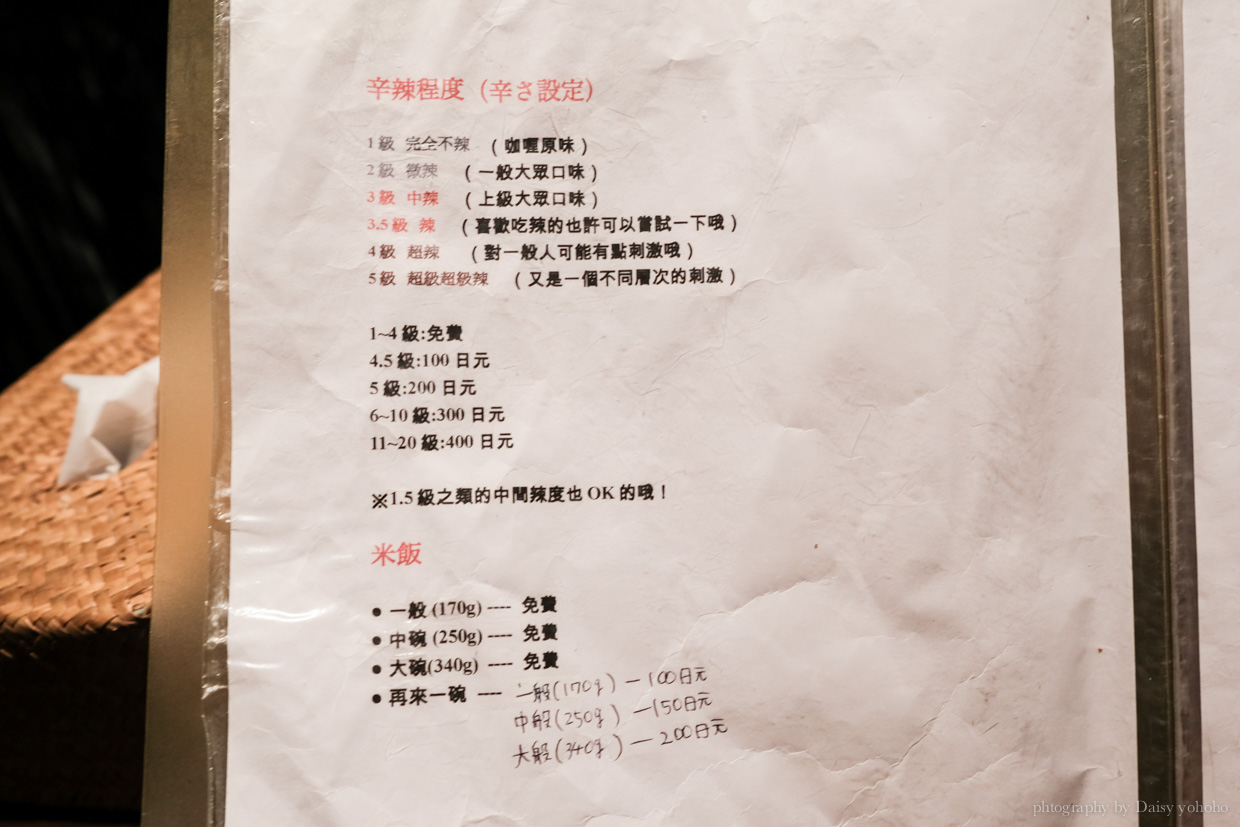 辛辣程度（辛さ設定）
1級 完全不辣 （咖喱原味）
2級 微辣 （一般大眾口味）
3級 中辣 （上級大眾口味）
3.5級 辣 （喜歡吃辣的也許可以嘗試一下哦）
4級 超辣 （對一般人可能有點刺激哦）
5級 超級超級辣 （又是一個不同層次的刺激）
1~4級:免費
4.5級:100日元
5級:200日元
6~10級:300日元
11~20級:400日元
※1.5級之類的中間辣度也OK的哦！
米飯
● 一般 (170g) ---- 免費
● 中碗 (250g) ---- 免費
● 大碗(340g) ---- 免費
● 再來一碗 ---- 一般(170g) — 100日元
中般(250g) — 150日元
大般(340g) — 200日元
phtography by Daisy yohoho